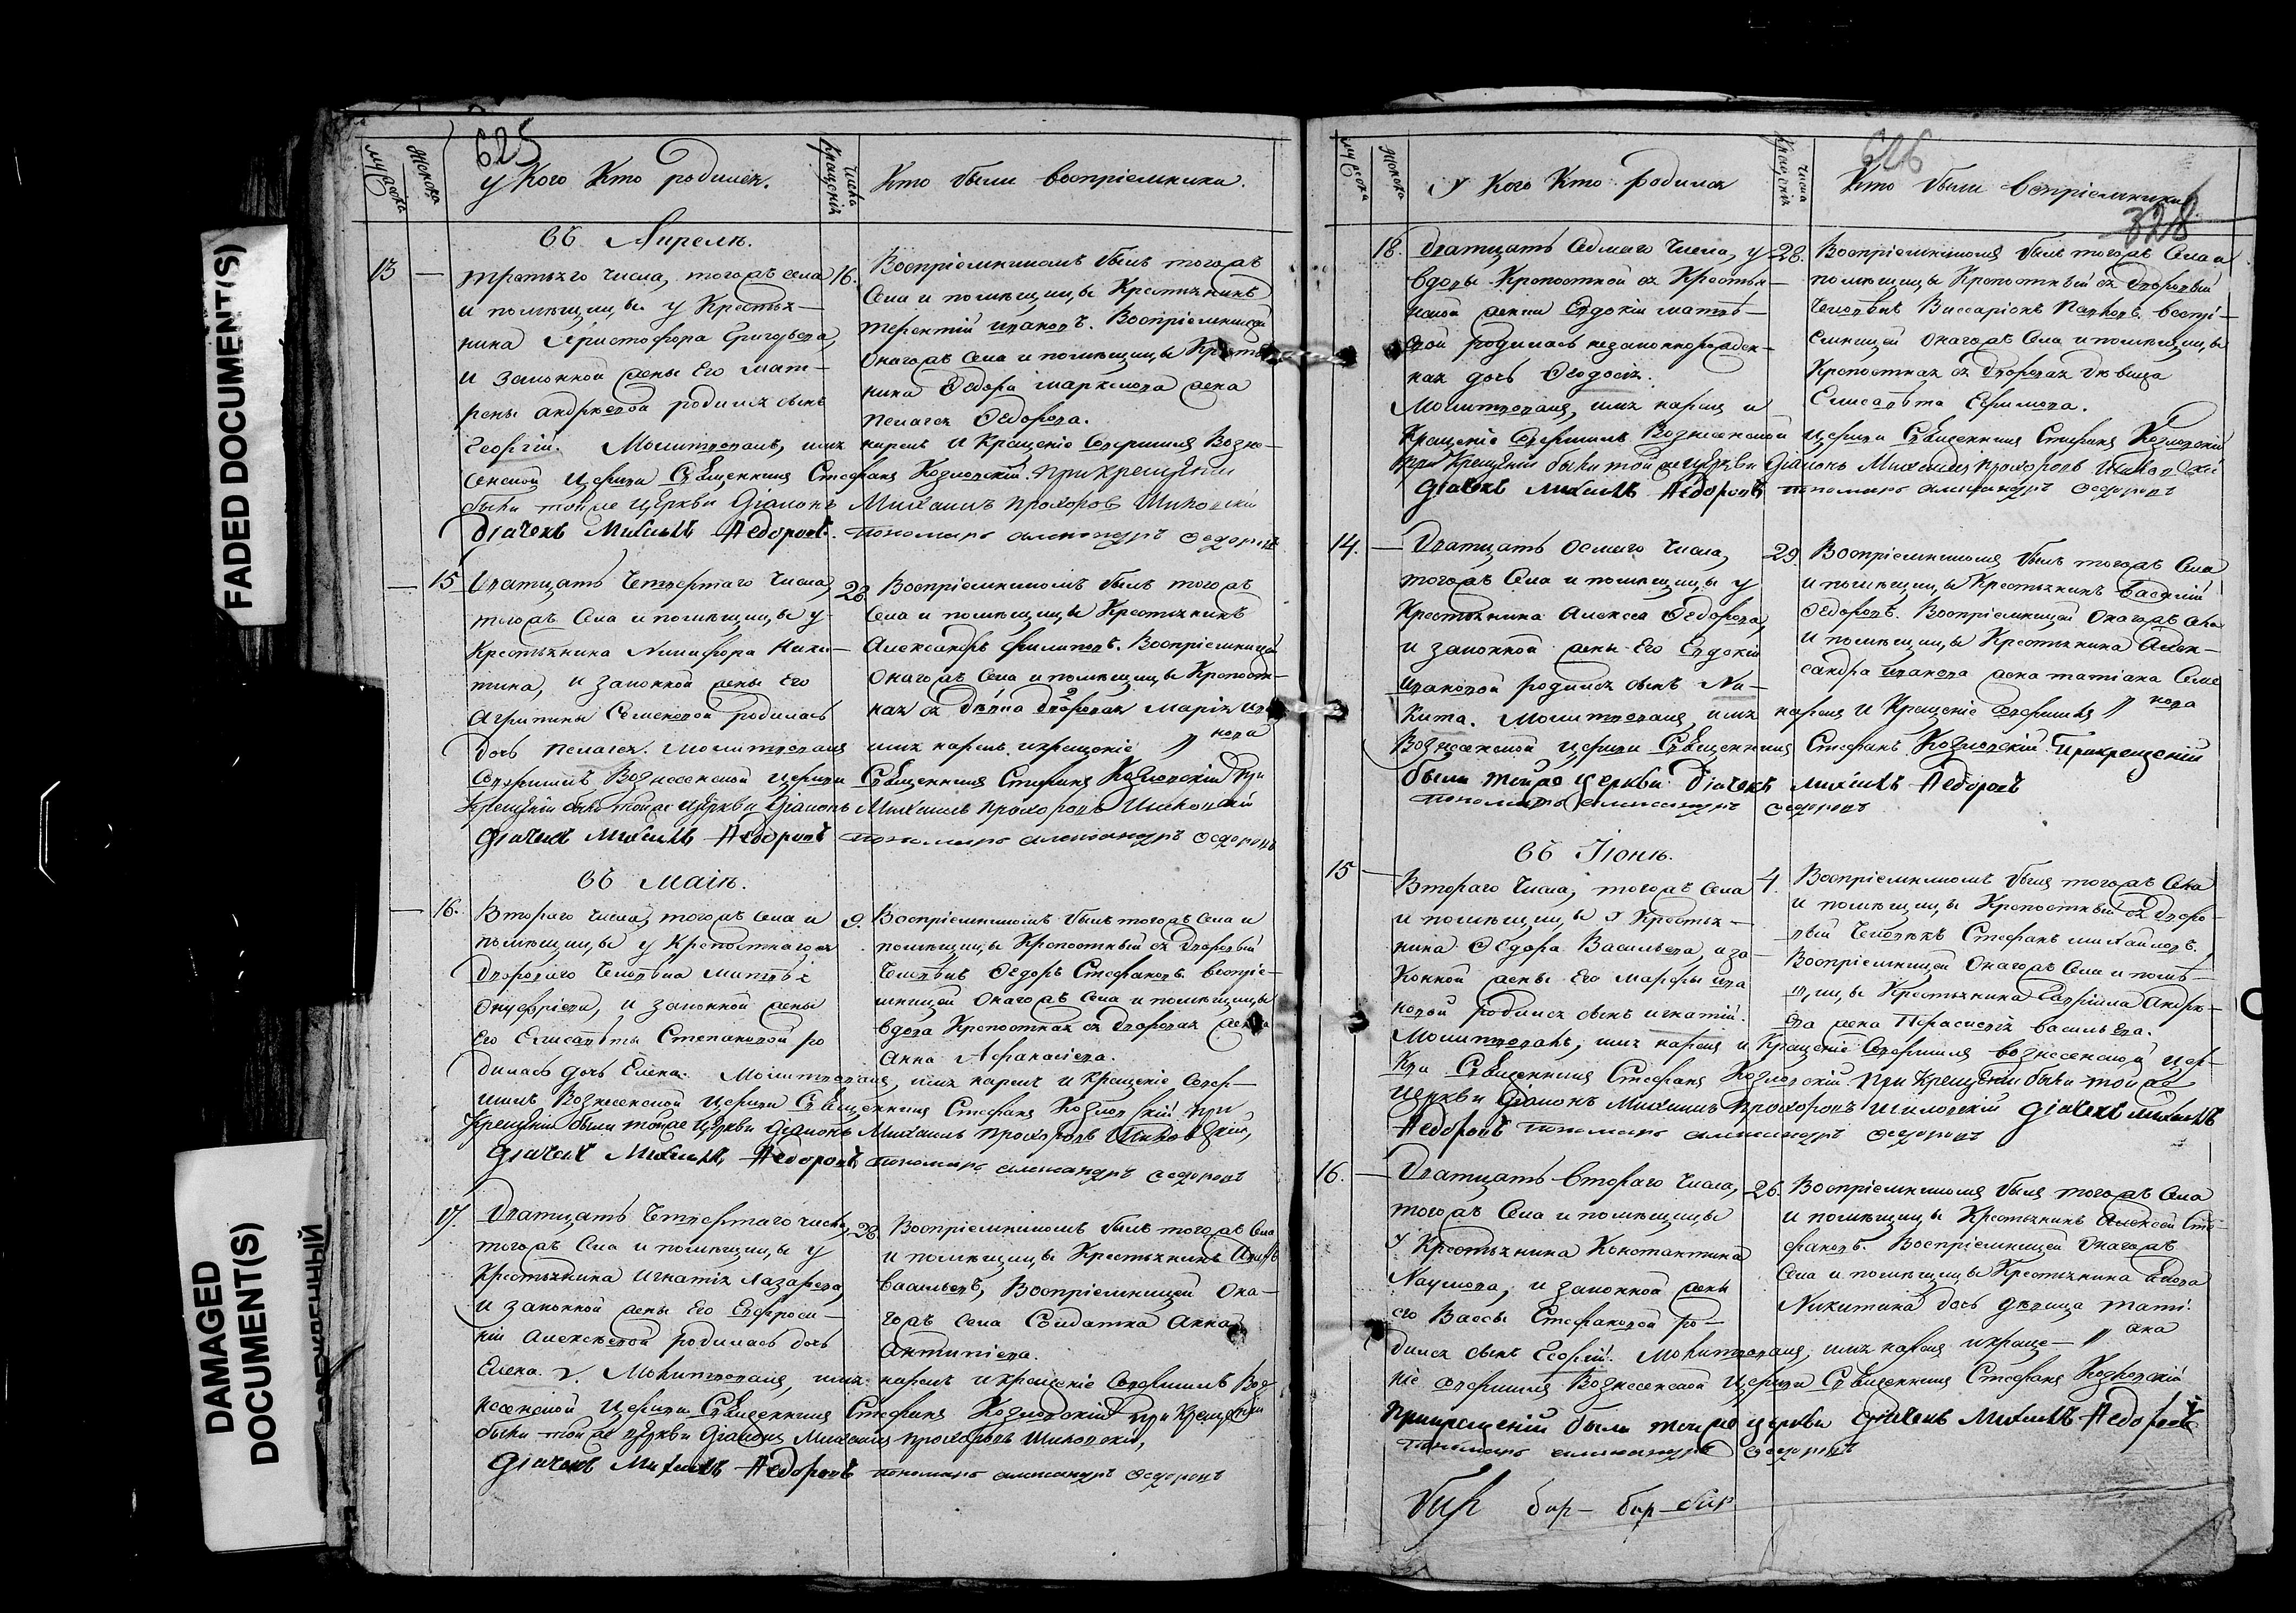 FADED DOCUMENT(S)
DAMAGED
DOCUMENT(S)
625
муеска
женска
у Кого Кто родился.
Числа Кращенія
Кто были воспріемники.
Въ Апрелѣ.
13 — третьяго числа, тогожъ села
и помѣщицы у Крестья-
нина Христофора Григорьева,
и законной жены Его Мат-
рены андреевой родился сынъ
Георгій. Молитвовалъ, имя нарекъ и Кращеніе Совершилъ Возне-
сенской Церкви Священникъ Стефанъ Козловскій. При крещеніи
были тойже церкви Діаконъ Михаилъ Прохоровъ
Діачекъ Михаилъ Федоровъ. пономарь александръ Федоровъ
16. Воспріемникомъ былъ тогожъ
Села и помѣщицы Крестьянинъ
терентій ивановъ. Воспріемницей
Онагожъ Села и помѣщицы Кресть
нина Федора жена
Пелагея Федорова.
— 15 Дватцать Четвертаго Числа,
тогожъ Села и помѣщицы у
Крестьянина Никифора Ники-
тина, и законной жены Его
Агрипины Семеновой родилась
дочь пелагея. Молитвовалъ имя нарекъ, икрещеніе
Совершилъ Вознесенской Церкви Священникъ Стефанъ Козловскій При
Крещеніи были тойже церкви Діаконъ Михаилъ Прохоровъ
Діачекъ Михаилъ Федоровъ пономарь александръ Федоровъ
28. Воспріемникомъ былъ тогожъ
Села и помѣщицы Крестьянинъ
Александръ филиповъ. Воспріемницей
Онагожъ Села и помѣщицы Крепост-
ная дворовая Марія Ива
нова
Въ Маіѣ.
— 16. Втораго числа, тогожъ Села и
помѣщицы у Крепостнагожъ
Двороваго Человѣка
Онуфріева, и законной жены
Его Елисаветы Степановой ро
дилась дочь Елена. Молитвовалъ, имя нарекъ и Кращеніе Совер-
шилъ Вознесенской Церкви Священникъ Стефанъ Козловскій при
Крещеніи были тойже церкви Діаконъ Михаилъ Прохоровъ
Діачекъ Михаилъ Федоровъ пономарь александръ Федоровъ
9. Воспріемникомъ былъ тогожъ Села и
помѣщицы Крепостный дворовый
Человѣкъ Федоръ Стефановъ. воспріе-
мницей Онагожъ Села и помѣщицы
вдова Крепостная дворовая жена
Анна Афанасіева.
17. Дватцать Четвертаго числа,
тогожъ Села и помѣщицы у
Крестьянина Игнатія Лазарева,
и законной жены Его Евфроси-
ніи алексѣевой родилась дочь
Елена. Молитвовалъ, имя нарекъ икрещеніе Совершилъ Воз
несенской Церкви Священникъ Стефанъ Козловскій при Крещеніи
были тойже церкви Діаконъ Михаилъ прохоровъ
Діачекъ Михаилъ Федоровъ пономарь александръ Федоровъ
28. Воспріемникомъ былъ тогожъ Села
и помѣщицы Крестьянинъ
васильевъ, Воспріемницей Она-
гожъ Села Солдатка Анна
Антипіева.
626
328
муеска
женска
У Кого Кто родился
Числа Кращенія
Кто были Вспріемники
18. Дватцать Седмаго Числа, у
вдовы Крепостной Крестья-
нской жены Евдокіи матвѣ-
евой родилась незаконнорожден-
ная дочь Феодосія.
Молитвовалъ, имя нарекъ и
Крещеніе Совершилъ Вознесенской Церкви Священникъ Стефанъ Козловскій
при Крещеніи были тойже церкви Діаконъ Михаилъ прохоровъ
Діачекъ михаилъ Федоровъ пономарь александръ Федоровъ
28. Воспріемникомъ былъ тогожъ Села и
помѣщицы Крепостный дворовый
Человѣкъ Виссаріонъ Павловъ. воспрі-
емницей Онагожъ Села и помѣщицы
Крепостная дворовая дѣвица
Елисавѣта Ефимова.
14. — Дватцать Осмаго Числа,
тогожъ Села и помѣщицы у
Крестьянина Алексея Федорова,
и законной жены Его Евдокіи
Ивановой родился сынъ Ни-
кита. Молитвовалъ, имя нарекъ и Кращеніе Совершилъ
Вознесенской Церкви Священникъ Стефанъ Козловскій Прикрещеніи
были тойже церкви діачекъ михаилъ Федоровъ
пономарь александръ Федоровъ
29. Воспріемникомъ былъ тогожъ Села
и помѣщицы Крестьянинъ Василій
Федоровъ. Воспріемницей Онагожъ Села
и помѣщицы Крестьянина Алек-
сандра Иванова жена татіана Семе
нова
Въ Іюнѣ.
15 — Втораго Числа, тогожъ Села
и помѣщицы У Крестья-
нина Федора Васильева, иза-
Конной жены Его Марфы ива
новой родился сынъ игнатій.
Молитвовалъ, имя нарекъ и Кращеніе Совершилъ вознесенской Цер-
кви Священникъ Стефанъ Козловскій. При Крещеніи были тойже
церкви Діаконъ Михаилъ Прохоровъ Діачекъ михаилъ
Федоровъ пономарь александръ Федоровъ
4. Воспріемникомъ былъ тогожъ Села
и помѣщицы Крепостный дворо-
вый Человѣкъ Стефанъ михайловъ.
Воспріемницей Онагожъ Села и помѣ-
щицы Крестьянина Гавріила Андре-
ева жена Параскевія васильева.
16. — Дватцать Втораго Числа,
тогожъ Села и помѣщицы
У Крестьянина Константина
Наумова, и законной жены
его Вассы Стефановой ро-
дился сынъ Георгій. Молитвовалъ, имя нарекъ икраще-
ніе совершилъ Вознесенской Церкви Священникъ Стефанъ Козловскій
Прикрещеніи были тойже церкви діачекъ Михаилъ Федоровъ
пономарь александръ Федоровъ
26. Воспріемникомъ былъ тогожъ Села
и помѣщицы Крестьянинъ Алексей Сте-
фановъ. Воспріемницей Онагожъ
Села и помѣщицы Крестьянина
Никитина дочь дѣвица тати.
ана